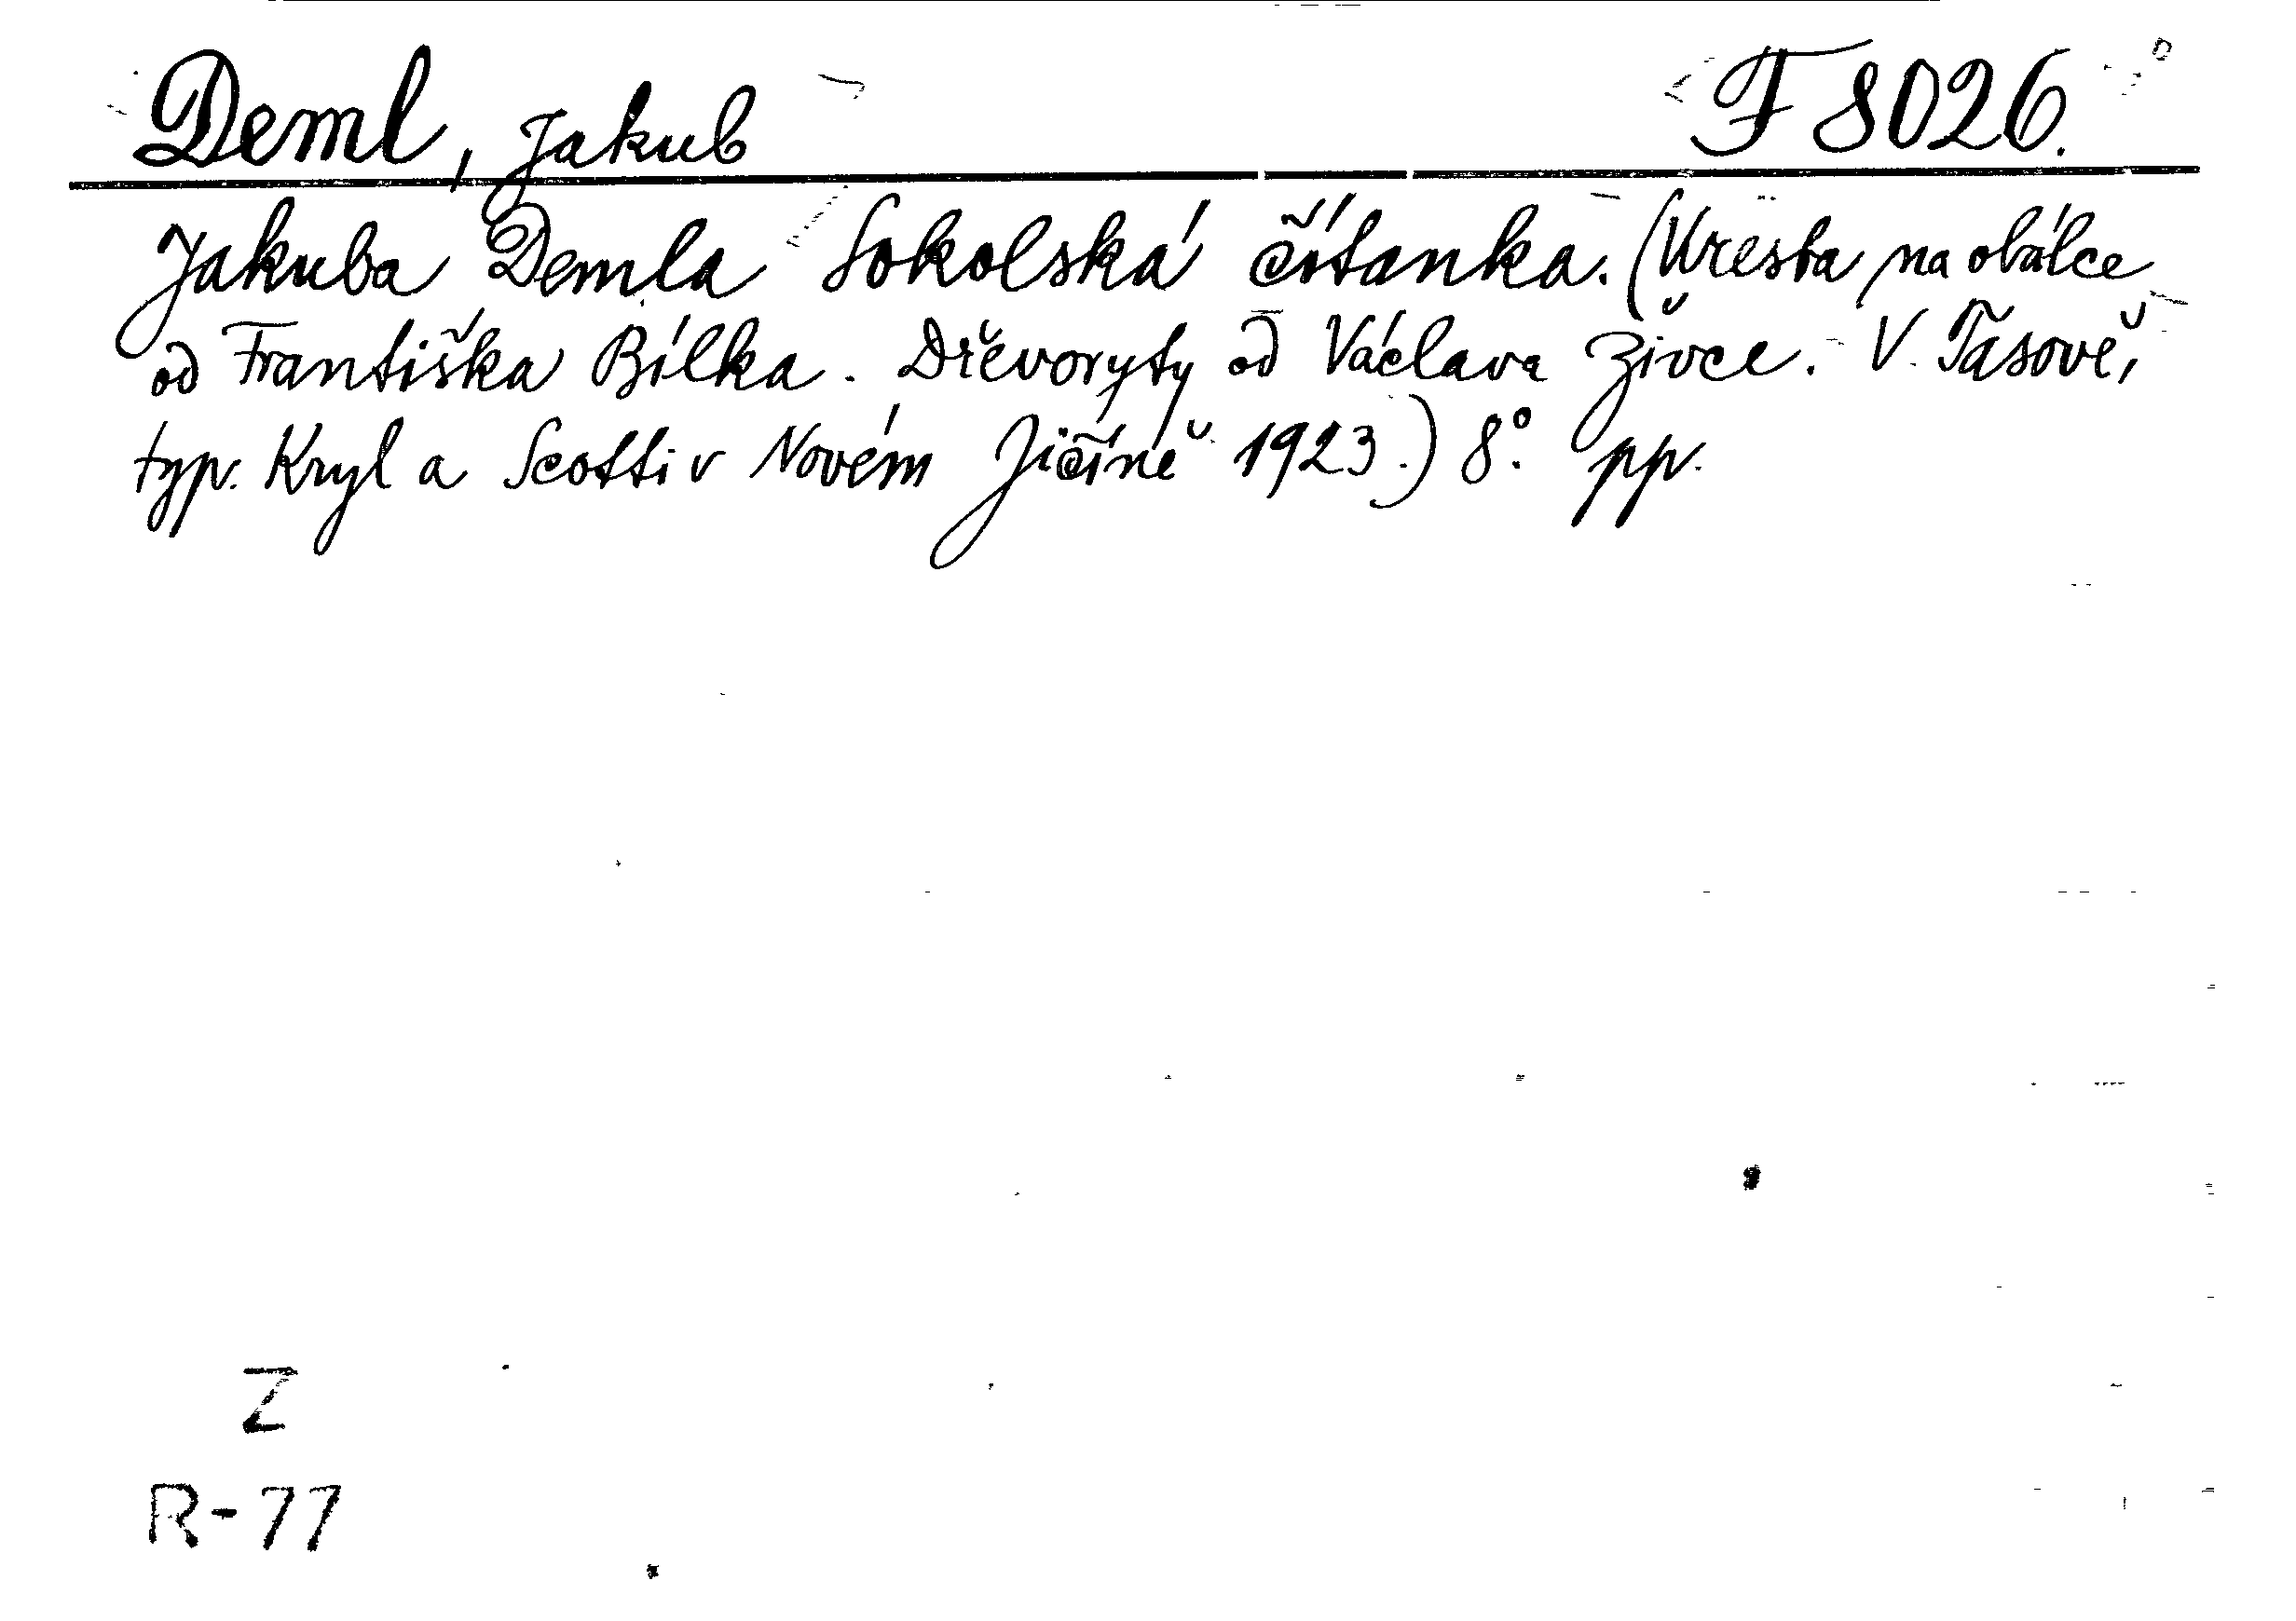 Deml, Jakub F 8026.
Jakuba Demla Sokolská čítanka. (Kresba na obálce
od Františka Bílka. Dřevoryty od Václava Živce. V Tasově,
typ. Kryl a Scotti v Novém Jičíně 1923.) 8°. pp.
Z
R-77